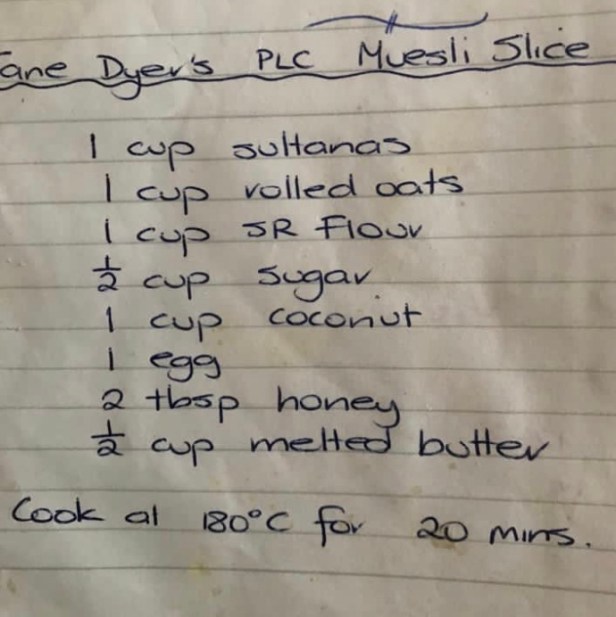 ane Dyer's PLC Muesli Slice
1 cup sultanas
1 cup rolled oats
1 cup SR Flour
1/2 cup sugar
1 cup coconut
1 egg
2 tbsp honey
1/2 cup melted butter
Cook at 180°C for 20 mins.